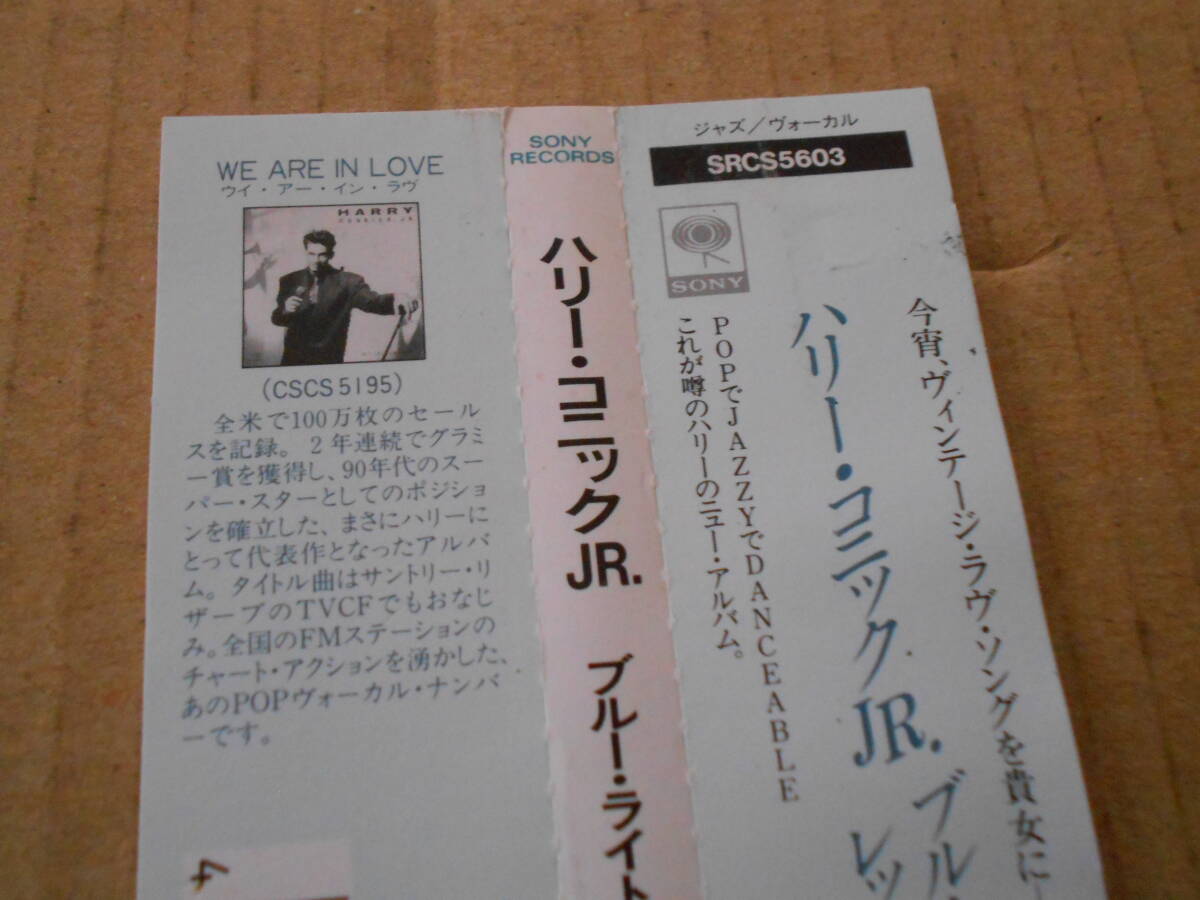 WE ARE IN LOVE
ウイ・アー・イン・ラヴ
HARRY
CONNICK, JR.
(CSCS 5195)
全米で100万枚のセール
スを記録。2年連続でグラミ
ー賞を獲得し、90年代のスー
パー・スターとしてのポジショ
ンを確立した、まさにハリーに
とって代表作となったアルバ
ム。タイトル曲はサントリー・リ
ザーブのTVCFでもおなじ
み。全国のFMステーションの
チャート・アクションを湧かした、
あのPOPヴォーカル・ナンバ
ーです。
SONY
RECORDS
ハリー・コニックJR.
ブルー・ライト
ジャズ／ヴォーカル
SRCS5603
SONY
今宵、ヴィンテージ・ラヴ・ソングを貴女に
ハリー・コニックJR.
ブル
レッ
POPでJAZZYでDANCEABLE
これが噂のハリーのニュー・アルバム。